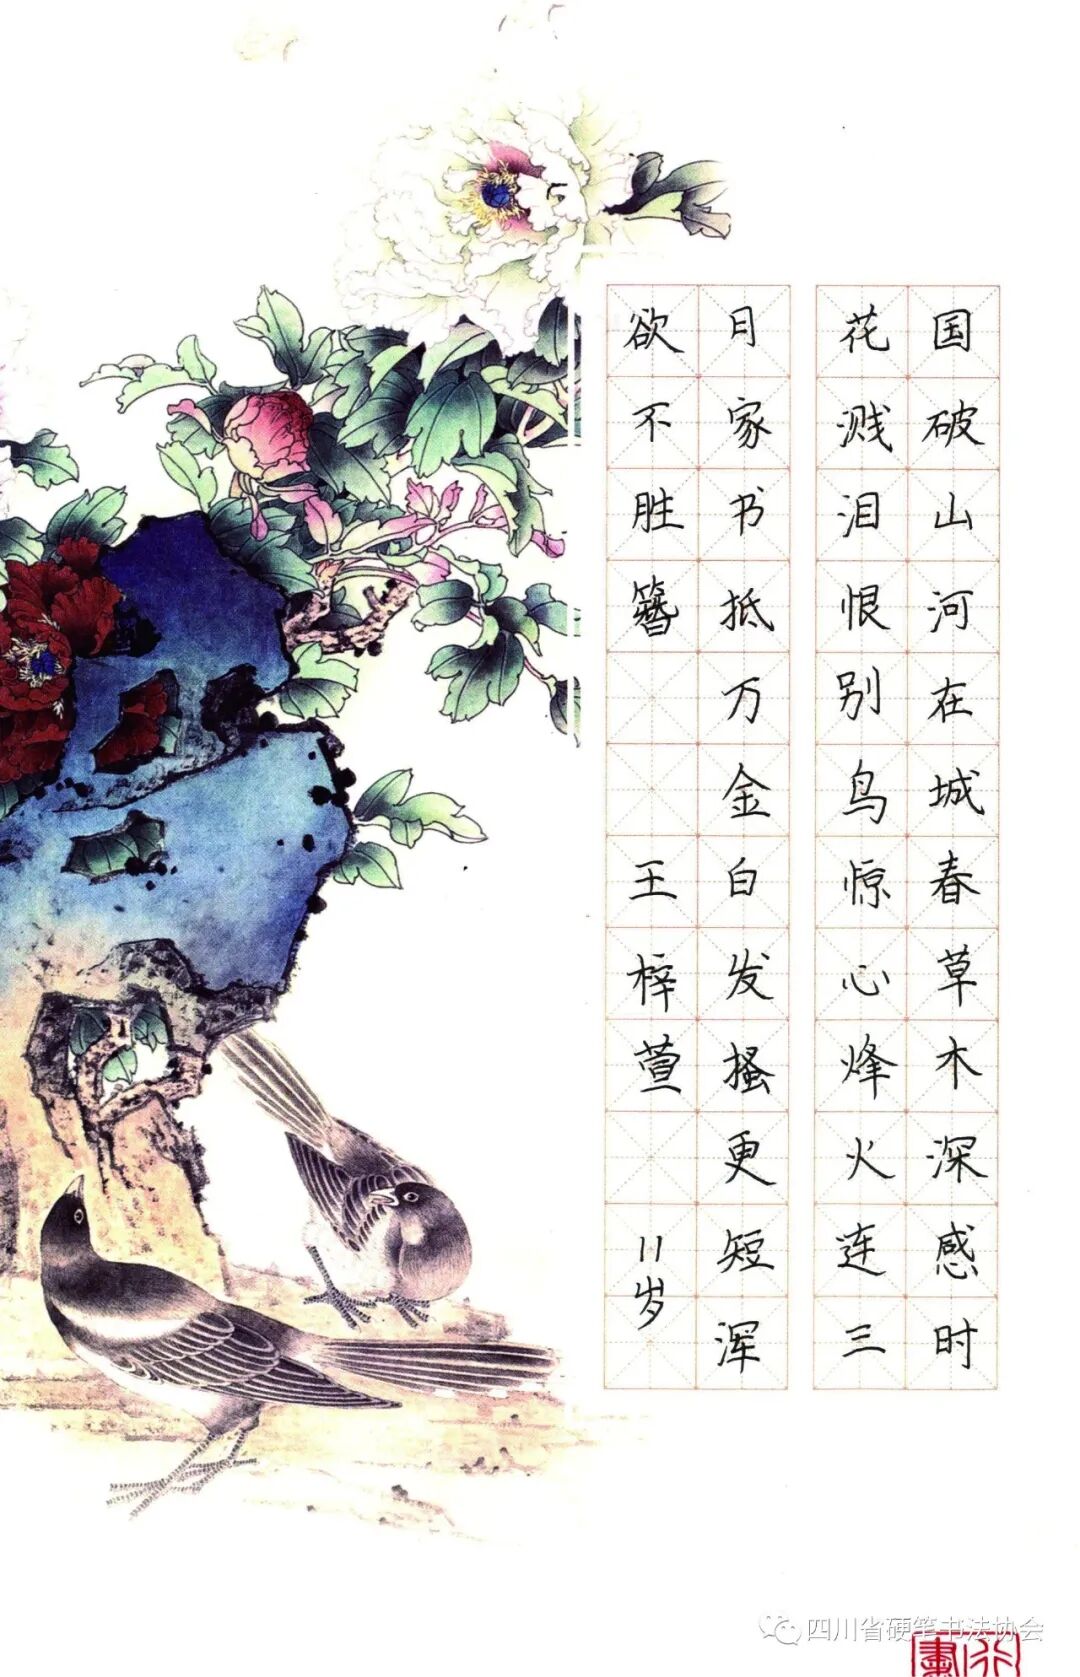 国破山河在城春草木深感时
花溅泪恨别鸟惊心烽火连三
月家书抵万金白发搔更短浑
欲不胜簪 王梓萱 11岁
四川省硬笔书法协会